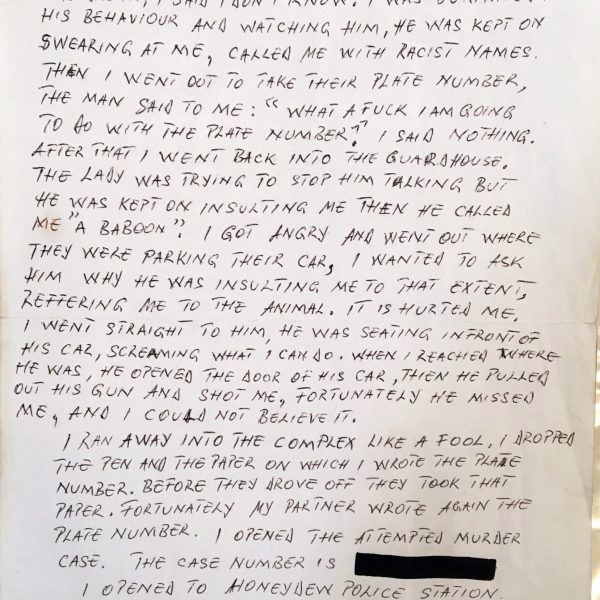 HIS BEHAVIOUR AND WATCHING HIM, HE WAS KEPT ON
SWEARING AT ME, CALLED ME WITH RACIST NAMES.
THEN I WENT OUT TO TAKE THEIR PLATE NUMBER,
THE MAN SAID TO ME: "WHAT A FUCK I AM GOING
TO DO WITH THE PLATE NUMBER?" I SAID NOTHING.
AFTER THAT I WENT BACK INTO THE GUARDHOUSE.
THE LADY WAS TRYING TO STOP HIM TALKING BUT
HE WAS KEPT ON INSULTING ME THEN HE CALLED
ME "A BABOON". I GOT ANGRY AND WENT OUT WHERE
THEY WERE PARKING THEIR CAR, I WANTED TO ASK
HIM WHY HE WAS INSULTING ME TO THAT EXTENT,
REFFERING ME TO THE ANIMAL. IT IS HURTED ME.
I WENT STRAIGHT TO HIM, HE WAS SEATING INFRONT OF
HIS CAR, SCREAMING WHAT I CAN DO. WHEN I REACHED WHERE
HE WAS, HE OPENED THE DOOR OF HIS CAR, THEN HE PULLED
OUT HIS GUN AND SHOT ME, FORTUNATELY HE MISSED
ME, AND I COULD NOT BELIEVE IT.
I RAN AWAY INTO THE COMPLEX LIKE A FOOL, I DROPPED
THE PEN AND THE PAPER ON WHICH I WROTE THE PLATE
NUMBER. BEFORE THEY DROVE OFF THEY TOOK THAT
PAPER. FORTUNATELY MY PARTNER WROTE AGAIN THE
PLATE NUMBER. I OPENED THE ATTEMPTED MURDER
CASE. THE CASE NUMBER IS
I OPENED TO HONEYDEW POLICE STATION.